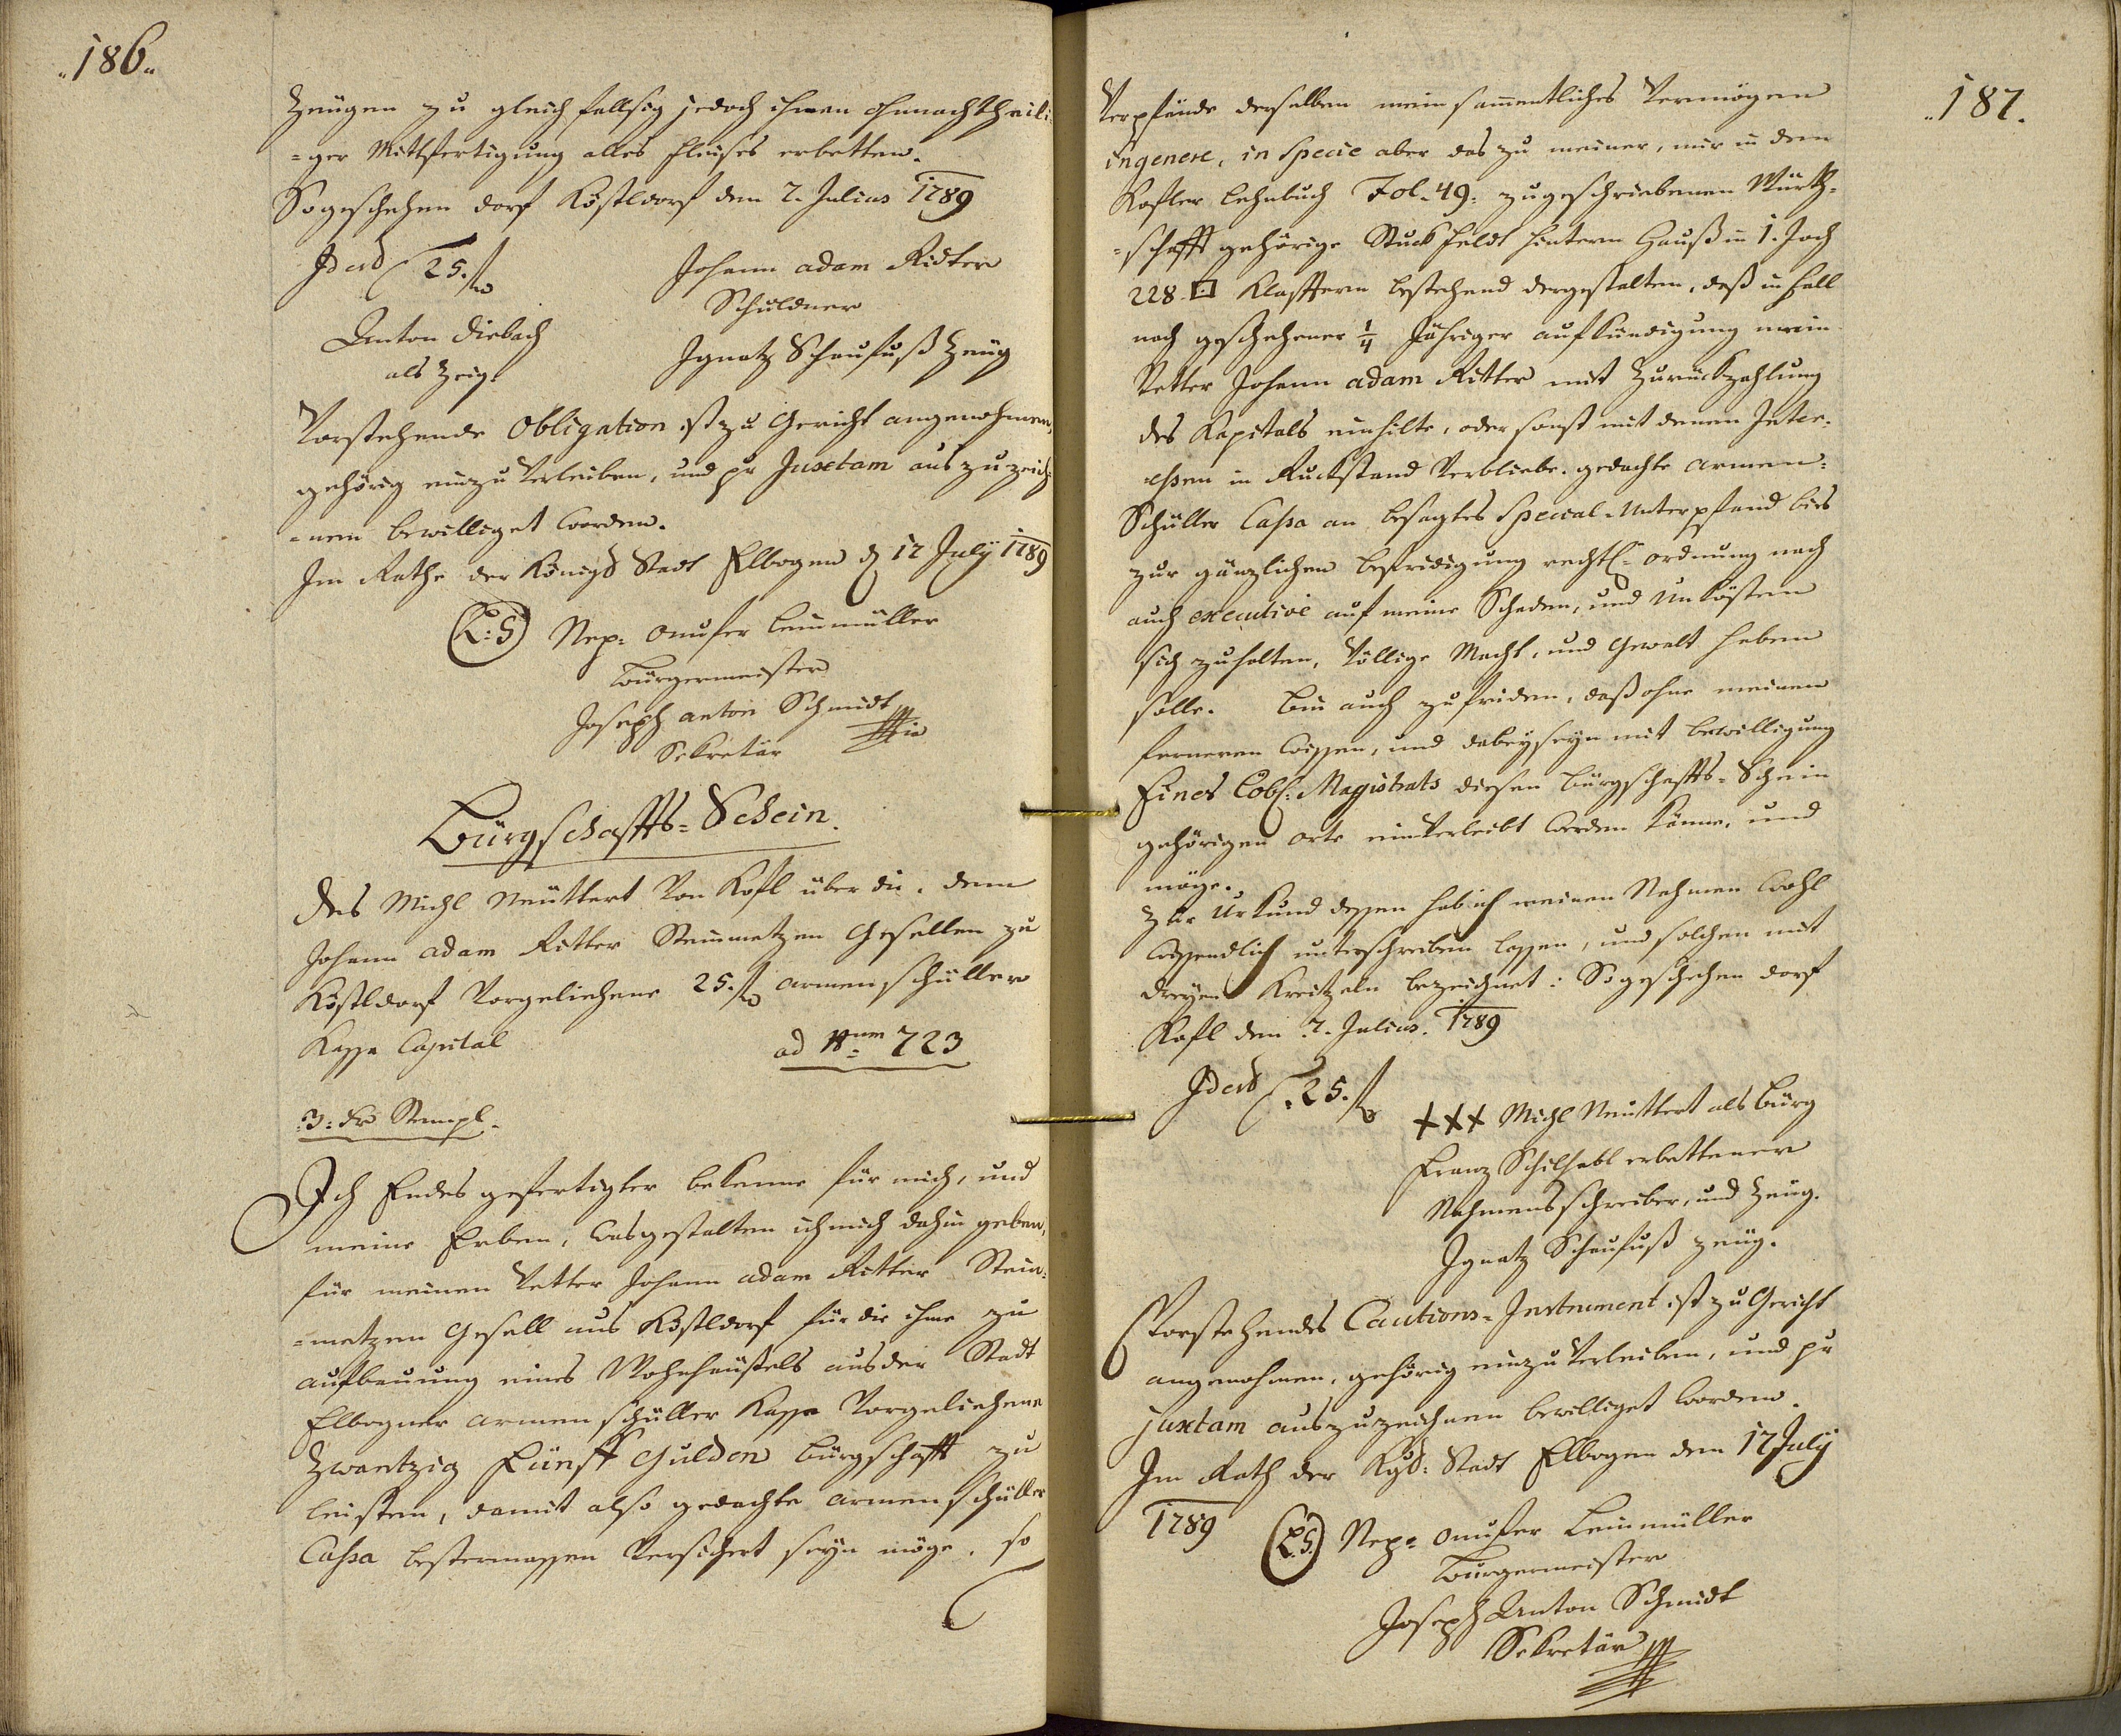 "186"
Zeügen zu gleichfallsig jedoch ihnen ohnnachtheili-
=ger Mittfertigung alles fleises erbetten.
So geschehen dorf Köstldorf den 2. Julius 1789
Id est 25. f
Johann adam Ridter
Schuldner
Anton Diebach
als Zeig.
Ignatz Schaufuß Zeüg
Vorstehende Obligation ist zu Gericht angenohmen,
gehörig einzuverleiben, und pr Juxtam auszuzeich-
=nen bewilliget worden.
Im Rathe der Königl Stadt Elbogen d 17 July 1789
(L:S) Nep: Onufer Leinmüller
Bürgermeister
Joseph anton Schmidt
Sekretär
Bürgschaffts=Schein.
Des Michl Meüttert von Kofl über die, dem
Johann adam Ritter Steinmetzen Gesellen zu
Köstldorf vorgeliehene 25. f armenschüller
Kassa Capital
ad Num 723
:3: Kr Stempl.
Ich Endes gefertigter bekenne für mich, und
meine Erben, wasgestalten ich mich dahin geben,
für meinen Vetter Johann adam Ritter Stein-
=metzen Gesell aus Köstldorf für die ihme zu
aufbauung eines Wohnhäußels aus der Stadt
Elbogner armenschüller Kassa vorgeliehene
Zwantzig Fünff Gulden bürgschafft zu
leisten, damit also gedachte armenschüller
Cassa bestermassen versichert seyn möge, so
"187.
Verpfände derselben mein sammentliches Vermögen
in genere, in Specie aber das zu meiner, mir in dem
Kofler Lehnbuch Fol. 49. zugeschriebenen Würth-
=schafft gehörige Stuck Feldt hinterm Hauß in 1. Joch
228. □ Klafftern bestehend dergestalten, daß in fall
nach geschehener 1/4 Jähriger aufkündigung mein
Vetter Johann adam Ritter mit Zurückzahlung
des Kapitals einhilte, oder sonst mit denen Inter-
essen in Ruckstand verbliebe, gedachte armen-
Schüller Cassa an besagtes Special-Unterpfand bis
zur gänzlichen befridigung rechtl: ordnung nach
auch executive auf meine Schaden, und Unkösten
sich zuhalten, völlige Macht, und Gewalt haben
solle. bin auch zufriden, daß ohne meinen
ferneren Wissen, und dabeyseyn mit bewilligung
Eines Löbl: Magistrats diesen bürgschaffts-Schein
gehörigen orts einverleibt werden könne, und
möge.
Zur Urkund dessen hab ich meinen Nahmen wohl
wissendlich unterschreiben lassen, und solchen mit
dreyen Kreitzeln bezeichnet: So geschehen dorf
Kofl den 2. Julius. 1789
Id est 25. f
xxx Michl Meüttert als bürg
Franz Schilhabl erbettener
Nahmensschreiber, und Zeüg.
Ignatz Schaufuß zeüg.
Vorstehendes Cautions-Instrument ist zu Gericht
angenohmen, gehörig einzuverleiben, und pr
juxtam auszuzeichnen bewilliget worden.
Im Rath der Kgl: Stadt Elbogen den 17 July
1789
(L.S.) Nep: Onufer Leinmüller
Bürgermeister
Joseph Anton Schmidt
Sekretär